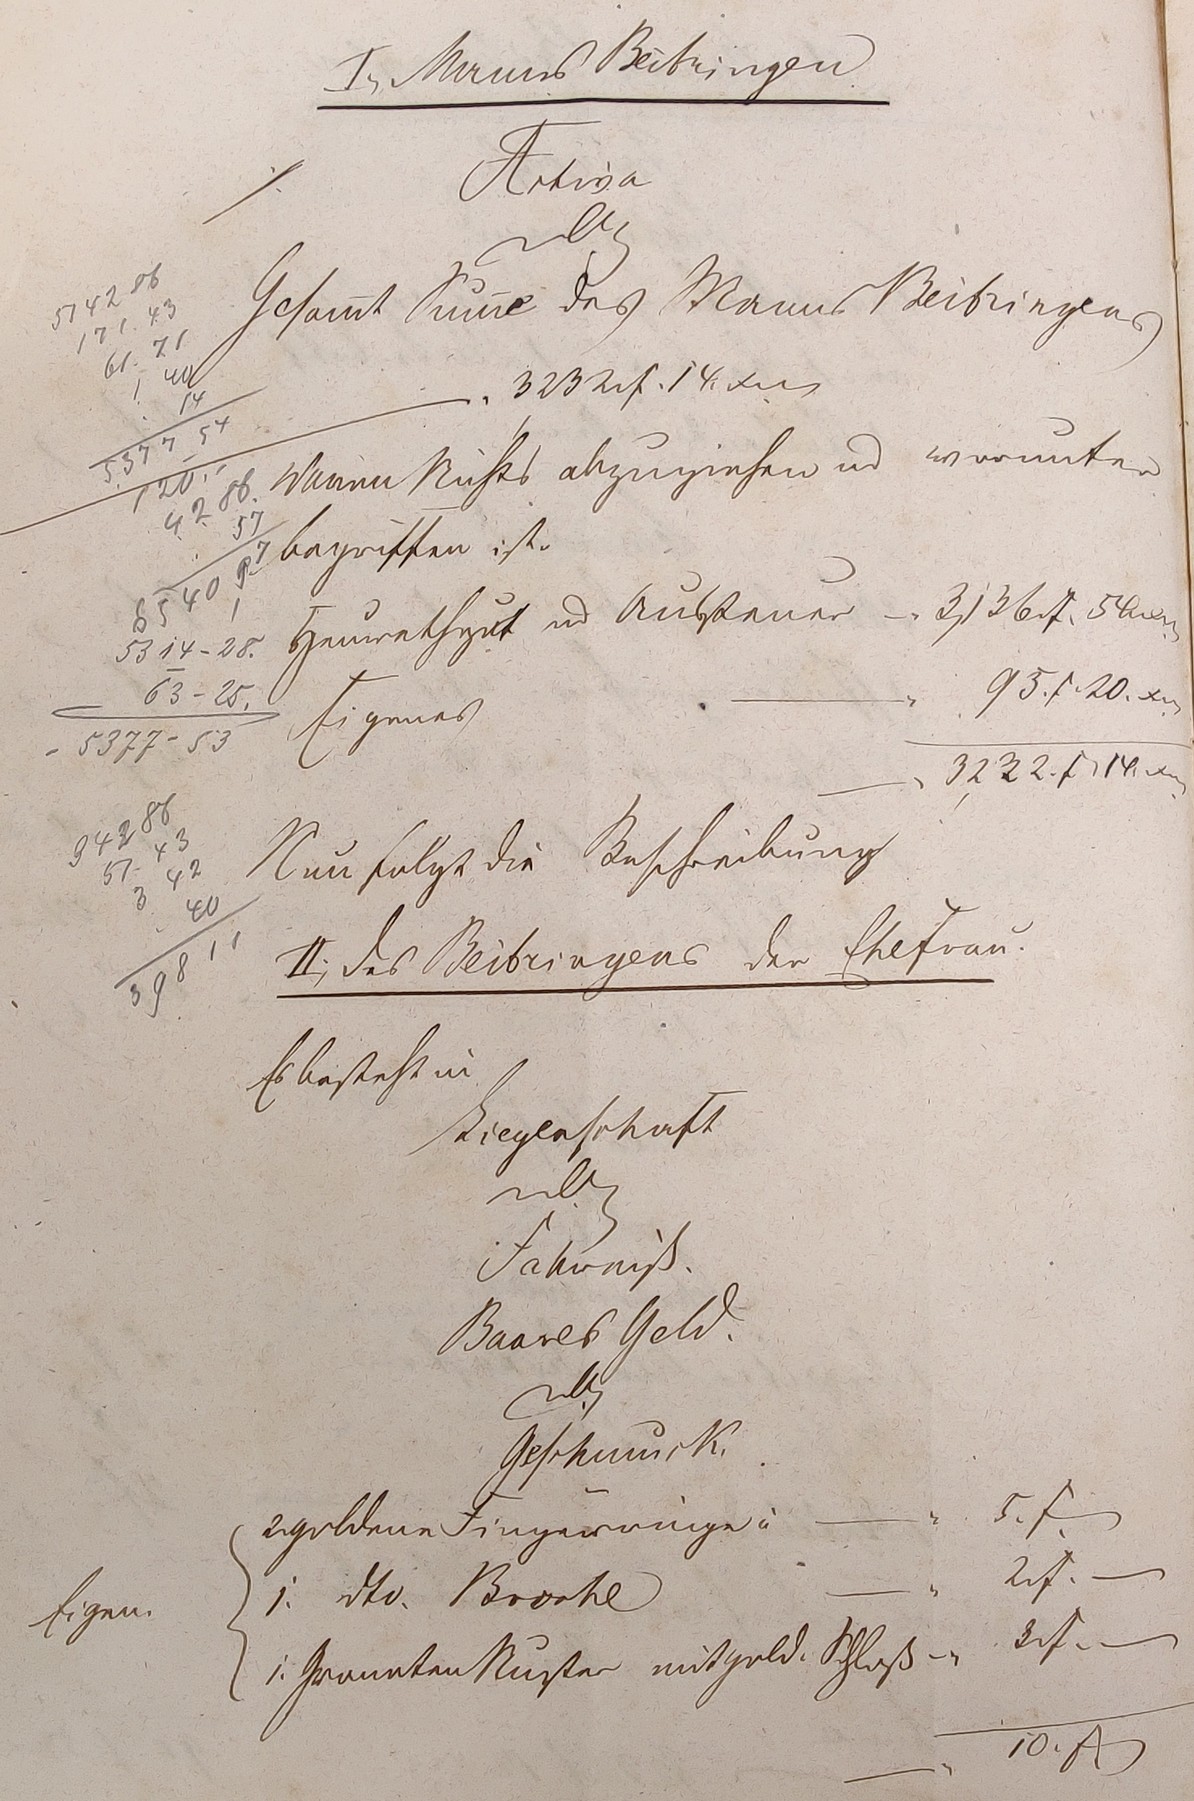 I, Manns Beibringen
Activa
./.
Gesamt Summe des Manns Beibringens
3232 f. 14. xr
wovon Nichts abzuziehen und worunter
begriffen ist.
Heurathgut und Aussteuer — 3,136 f. 54 xr
Eigenes — 95. f. 20. xr
— 3232. f. 14. xr
Nun folgt die Beschreibung
II, des Beibringens der Ehefrau.
Es besteht in
Liegenschaft
Fahrniß.
Baares Geld.
Geschmuck.
2. goldene Fingerringe à — 5. f. —
1. dto. Broche — 2 f. —
Eigen.
1. Granaten Nuster mit gold. Schloß — 3 f. —
— 10. f.
5142 86
171. 43
61. 71
1 40
14
5377 54
120.
42 86.
57
5540 97
1
5314 - 28.
63 - 25.
- 5377 - 53
342 86
51. 43
3 42
40
398 11